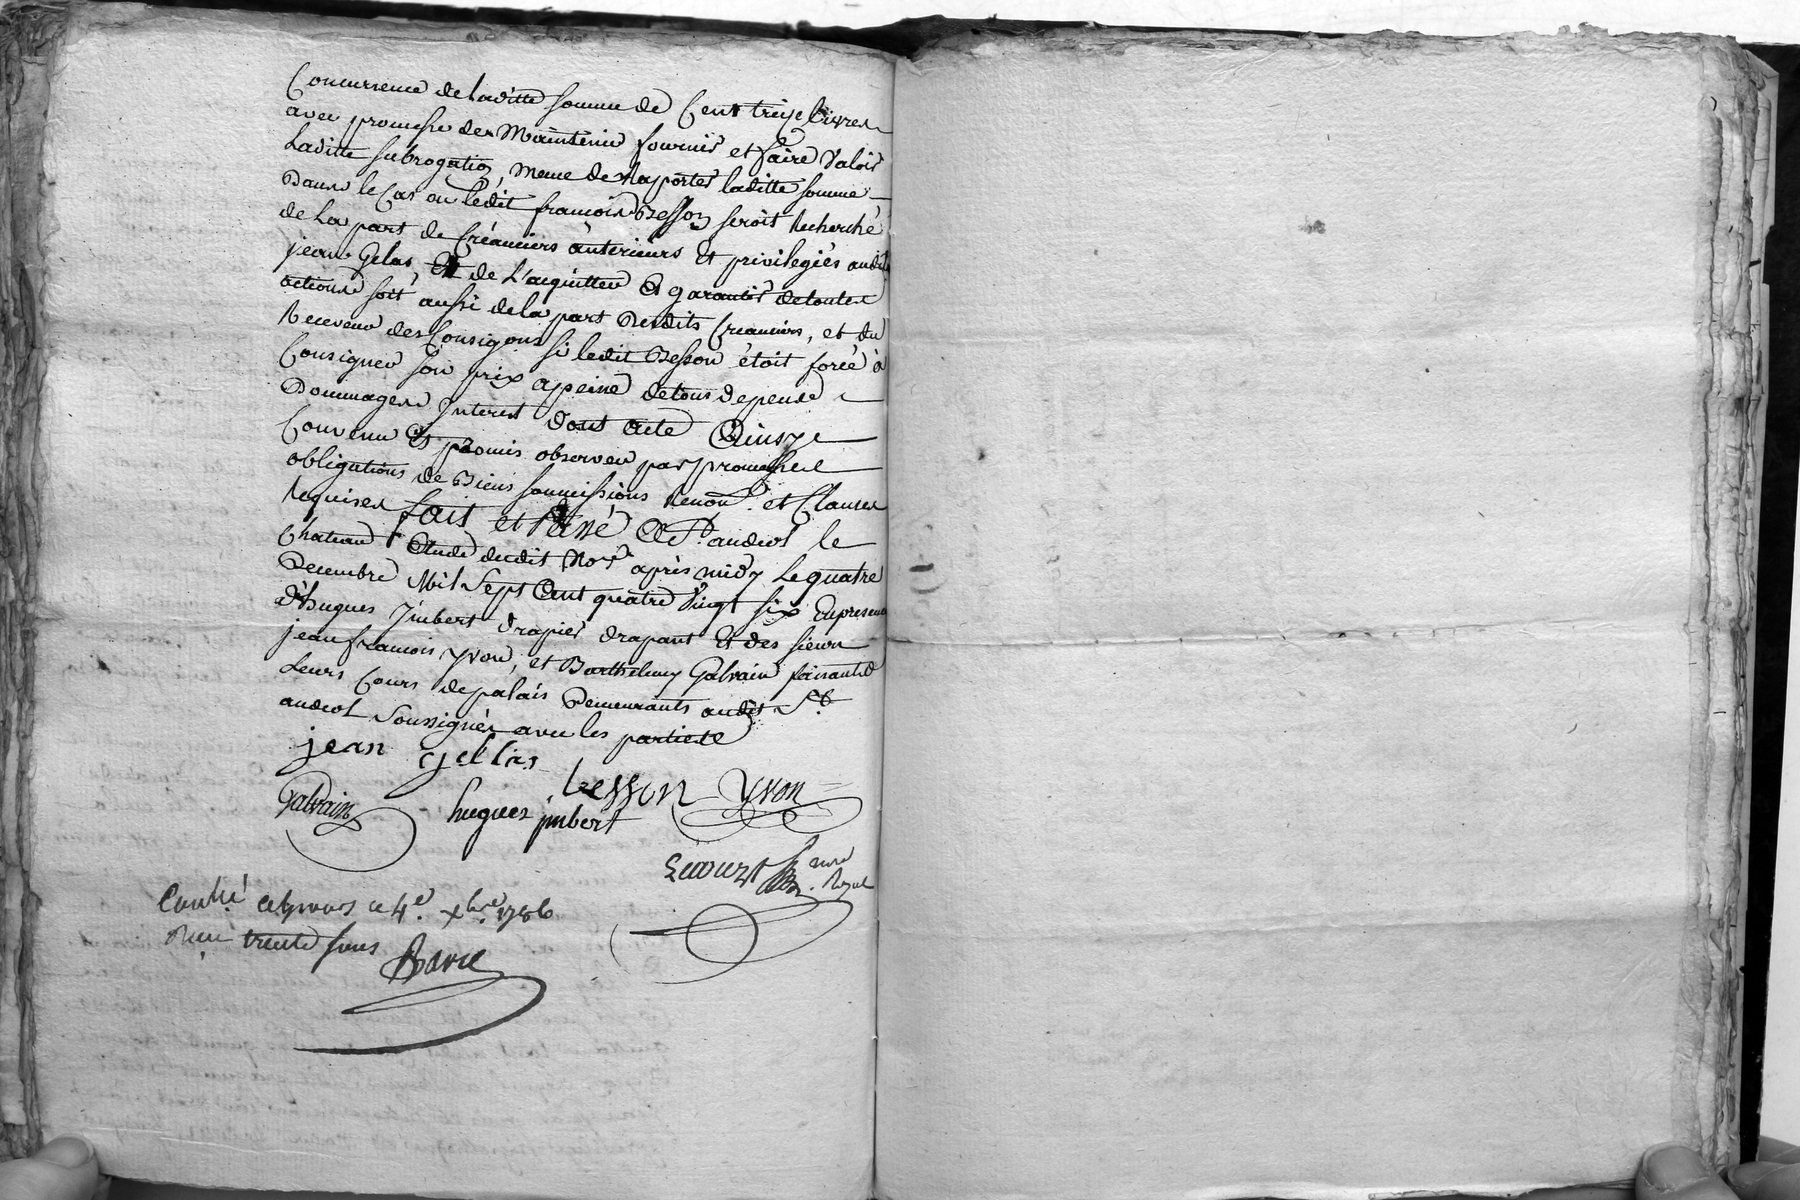 Concurrence de laditte somme de Cent treize livres
avec promesse de Maintenir fournir et faire Valoir
Laditte subrogation, meme de Raporter laditte somme
Dans le Cas ou ledit francois Besson seroit Recherché
de La part de Créanciers anterieurs et privilegiés audit
jean Gelas, Et de L'acquitter & garantir de toutes
actions soit aussi de la part Desdits Creanciers, et du
Receveur des Consigons si ledit Besson étoit forcé à
Consigner son prix a peine de tous depends
Dommages Interest dont acte Ainsy
Convenu Et promis observer par promesses
obligations de Biens soumissions Renon. et Clauses
Requises fait et Passé A St. andeol le
Chateau Etude dudit Nore. après midy Le quatre
Decembre Mil Sept Cent quatre Vingt six En presence
d'hugues Jmbert drapier drapant Et des sieurs
jean francois Yvon, et Barthelemy Galvain faisants
Leurs Cours de palais Demeurants audit St.
andeol Soussignés avec les parties
jean gellas
besson Yvon
Galvain hugues jmbert
nore Royal
Conllé ce 4e. xbre. 1786
trente sous